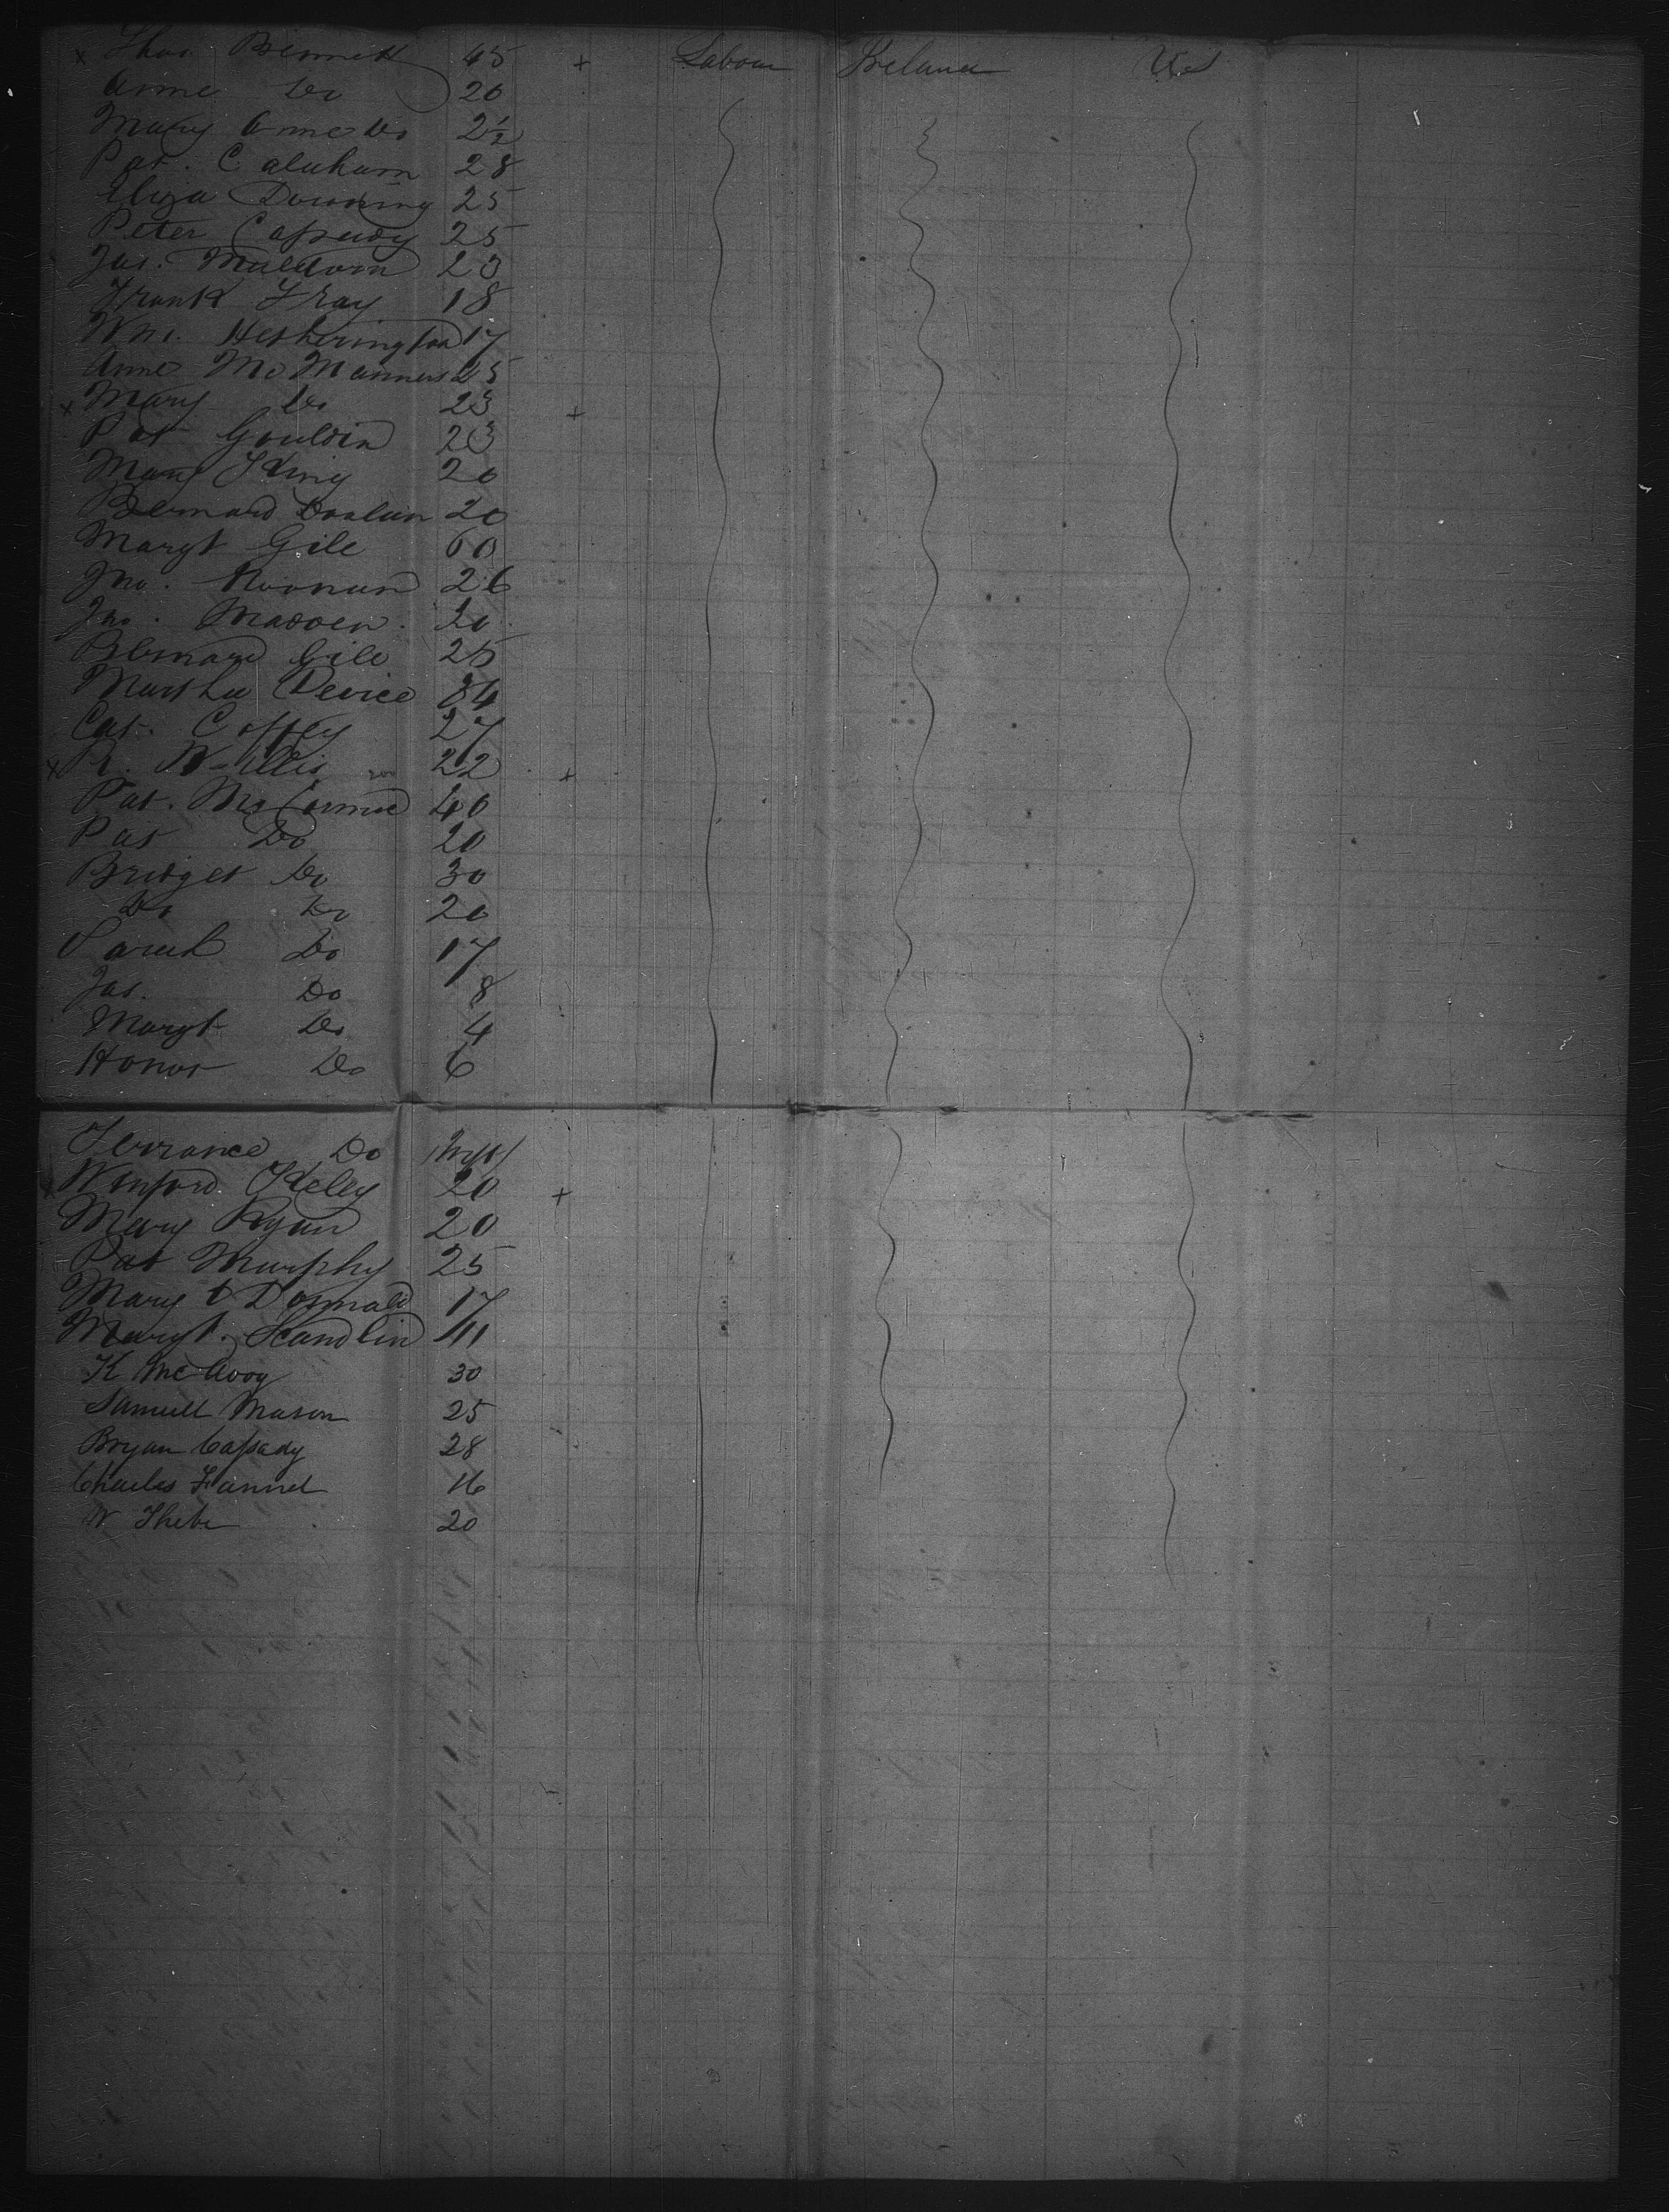 x Thos Bennett 45 + Labour Ireland U S
Anne Do 20
Mary Anne Do 2½
Pat. Calaham 28
Eliza Downing 25
Peter Cassidy 25
Jas. Muldoon 23
Frank Fray 18
Wm. Hetherington 17
Anne McManners 25
x Mary Do 23 +
Pat Gouldin 23
Mary King 20
Bernard Doolan 20
Margt Gile 60
Jno. Noonan 26
Jno. Madden 20
Bernard Gile 25
Martha Device 34
Cat. Coffey 27
x R. Willis 22 +
Pat. McCormic 40
Pat Do 20
Bridget Do 30
Do Do 20
Sarah Do 17
Jas. Do 8
Margt Do 4
Honor Do 6
Terrance Do Inft
x Winford Keley 20 +
Mary Ryan 20
Pat Murphy 25
Mary O Donnald 17
Margt. Scandlin 41
K McAvoy 30
Samuell Mason 25
Bryan Cassady 28
Charles Fannel 16
W 20